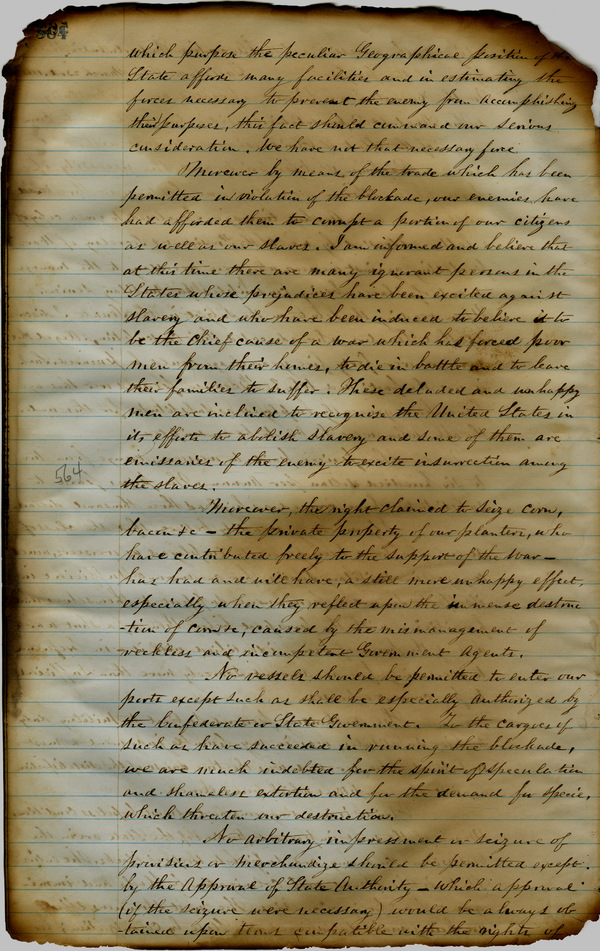 564
which purpose the peculiar Geographical position of the
State affords many facilities and in estimating the
forces necessary to prevent the enemy from accomplishing
their purposes, this fact should command our serious
consideration. We have not that necessary force
Moreover by means of the trade which has been
permitted in violation of the blockade, our enemies have
had afforded them to corrupt a portion of our citizens
as well as our slaves. I am informed and believe that
at this time there are many ignorant persons in the
States whose prejudices have been excited against
slavery and who have been induced to believe it to
be the Chief cause of a war which has forced poor
men from their homes, to die in battle and to leave
their families to suffer. These deluded and unhappy
men are inclined to recognise the United States in
its efforts to abolish slavery and some of them are
emissaries of the enemy to excite insurrection among
564
the slaves.
Moreover, the right claimed to seize corn,
bacon &c – the private property of our planters, who
have contributed freely to the support of the war –
has had and will have, a still more unhappy effect,
especially when they reflect upon the immense destruc
-tion of corn &c, caused by the mismanagement of
reckless and incompetent Government Agents.
No vessels should be permitted to enter our
ports except such as shall be especially authorized by
the Confederate or State Government. To the cargoes of
such as have succeeded in running the blockade,
we are much indebted for the spirit of speculation
and shameless extortion and for the demand for specie,
which threaten our destruction.
No arbitrary impressment or seizure of
provisions or Merchandize should be permitted except
by the Approval of State Authority – which approval
(if the seizure were necessary) would be always ob
-tained upon terms compatible with the rights of